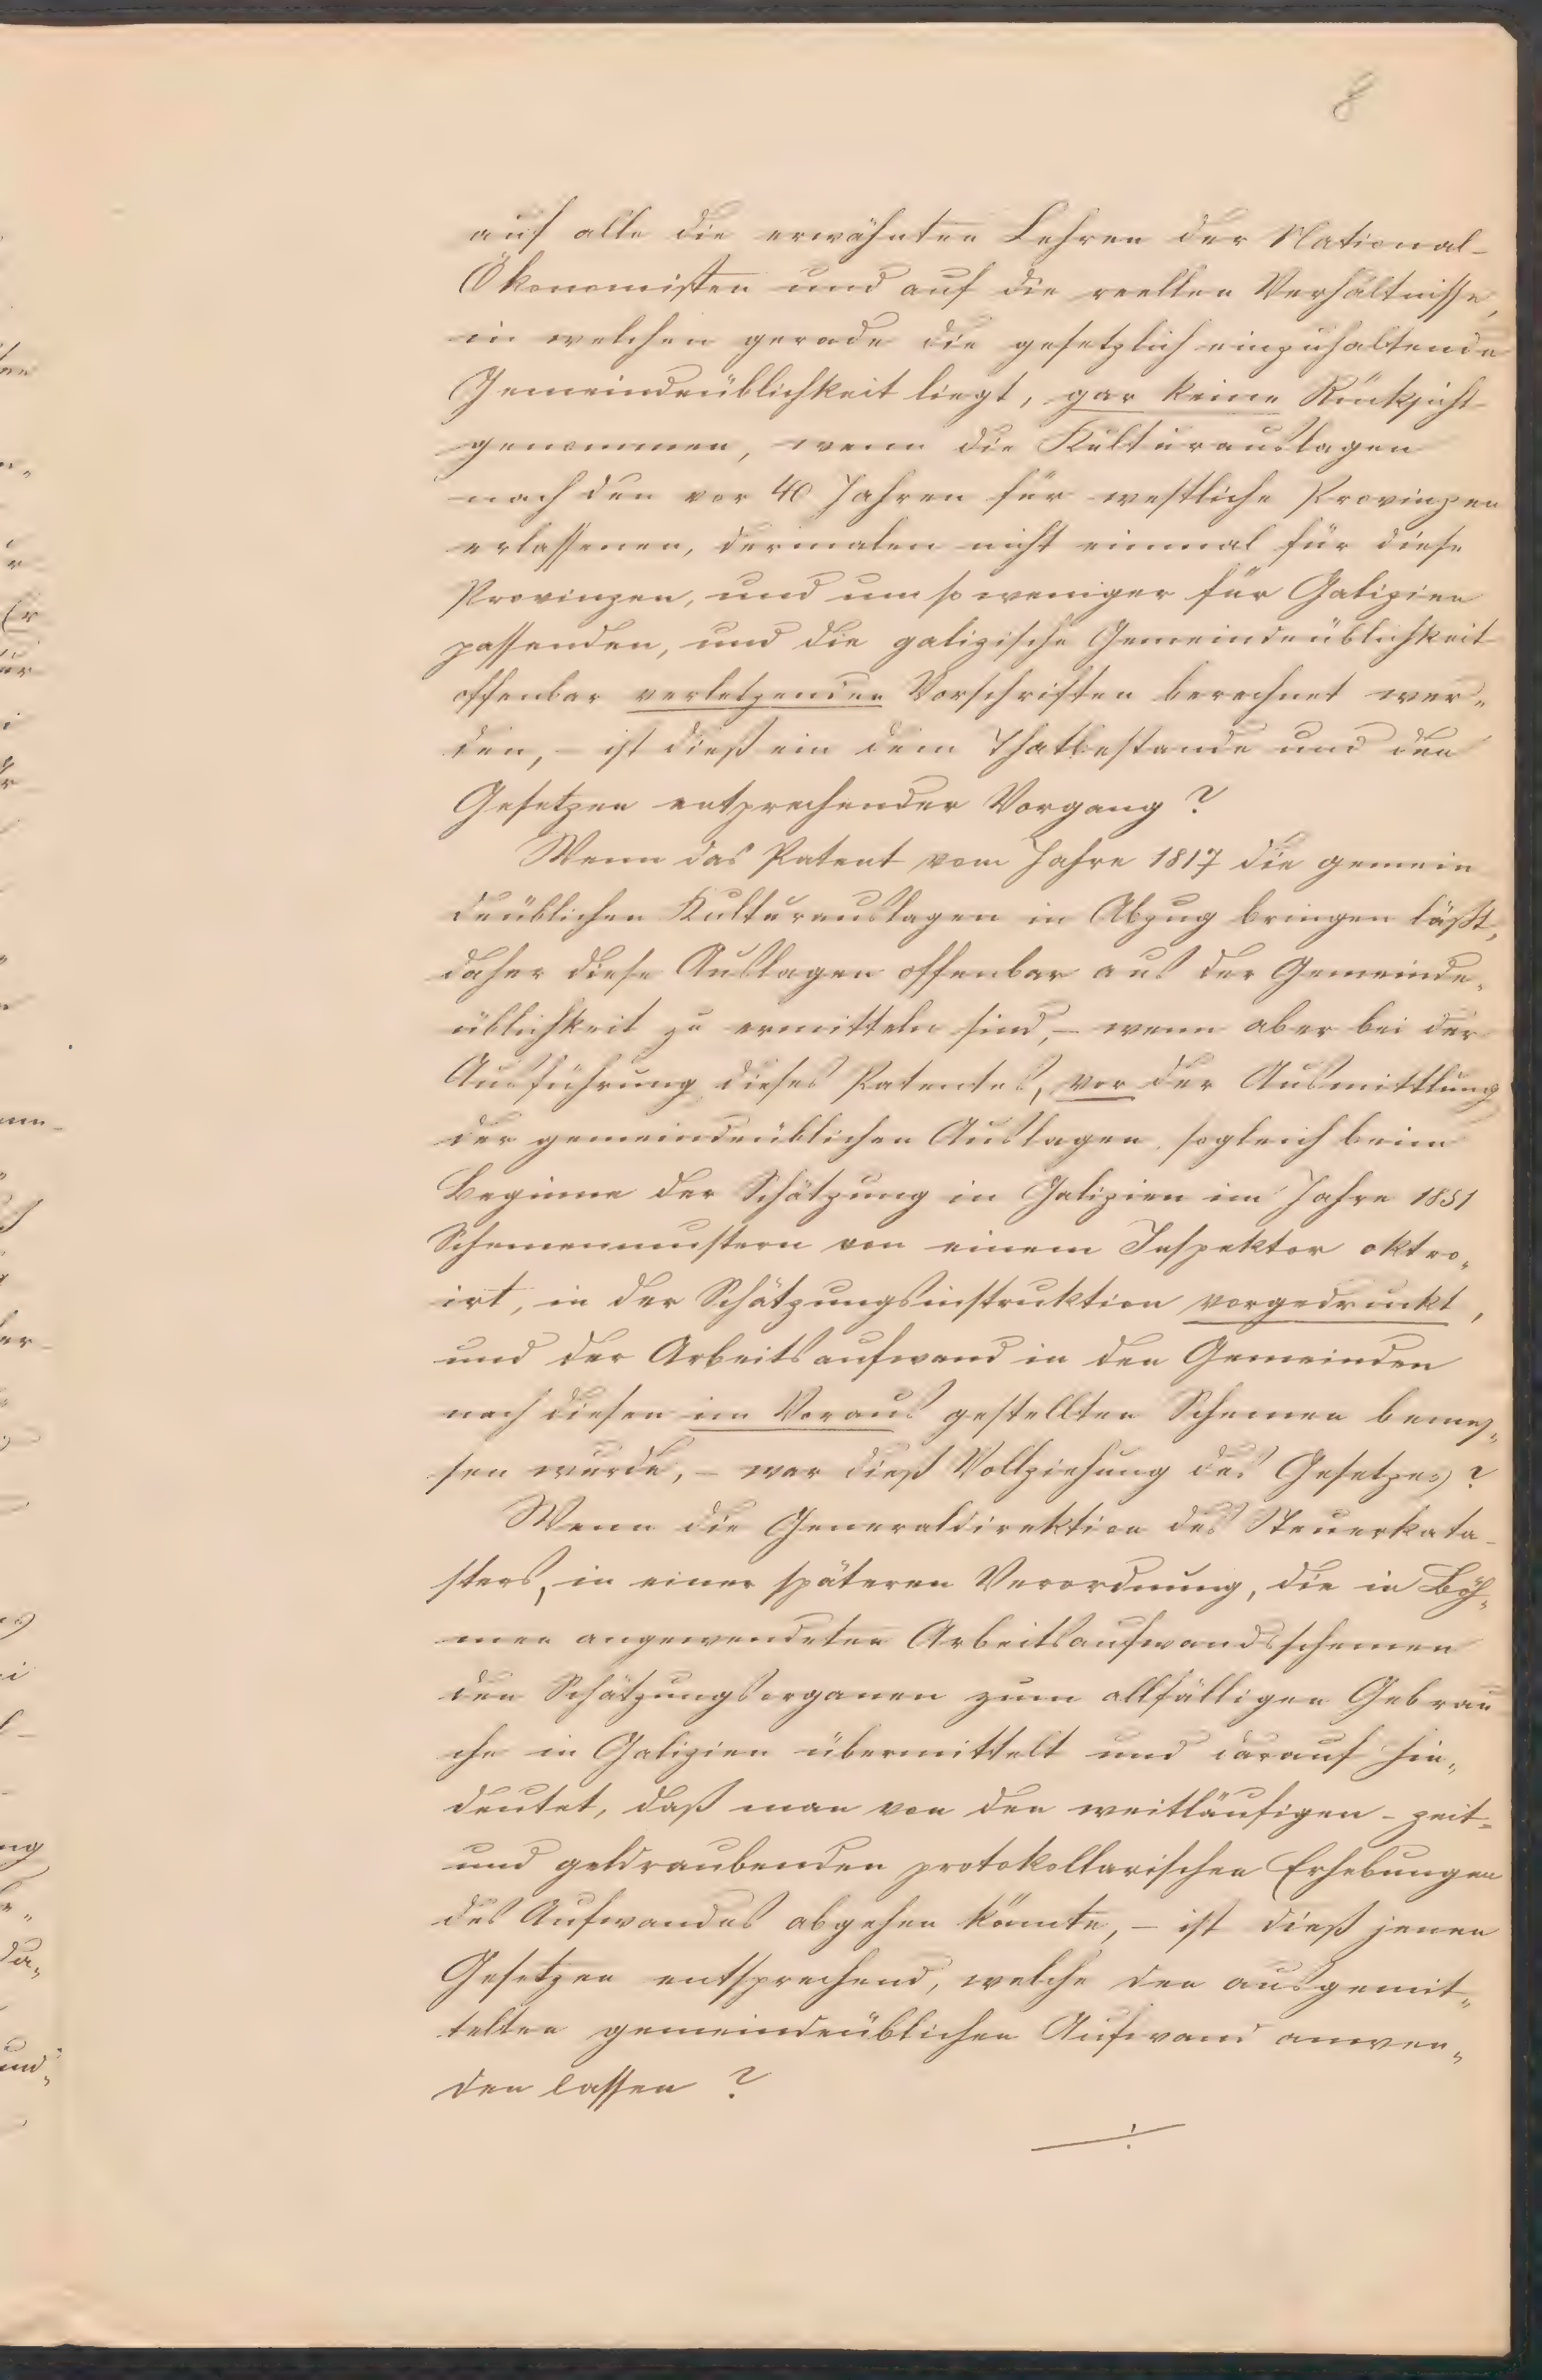 8
auf alle die erwähnten Lehren der National-
Ökonomisten und auf die reellen Verhältnisse,
in welchen gerade die gesetzlich einzuhaltende
Gemeindeüblichkeit liegt, gar keine Rücksicht
genommen, wenn die Kulturauslagen
nach den vor 40 Jahren für westliche Provinzen
erlassenen, dermalen nicht einmal für diese
Provinzen, und um so weniger für Galizien
passenden, und die galizische Gemeindeüblichkeit
offenbar verletzenden Vorschriften berechnet wer„
den, – ist dieß ein dem Thatbestande und den
Gesetzen entsprechender Vorgang?
Wenn das Patent vom Jahre 1817 die gemein
deüblichen Kulturauslagen in Abzug bringen läßt,
daher diese Auslagen offenbar aus der Gemeinde„
üblichkeit zu ermitteln sind, – wenn aber bei der
Ausführung dieses Patentes, vor der Ausmittlung
der gemeindeüblichen Auslagen, sogleich beim
Beginne der Schätzung in Galizien im Jahre 1851
Schemenmustern von einem Inspektor oktro„
irt, in der Schätzungsinstruktion vorgedruckt,
und der Arbeitsaufwand in den Gemeinden
nach diesen im Voraus gestellten Schemen bemes„
sen wurde, – war dieß Vollziehung des Gesetzes?
Wenn die Generaldirektion des Steuerkata-
sters, in einer späteren Verordnung, die in Böh„
men angewendeten Arbeitsaufwandsschemen
den Schätzungsorganen zum allfälligen Gebrau
che in Galizien übermittelt und darauf hin„
deutet, daß man von den weitläufigen – zeit-
und geldraubenden protokollarischen Erhebungen
des Aufwandes abgehen könnte, – ist dieß jenen
Gesetzen entsprechend, welche den ausgemit„
telten gemeindeüblichen Aufwand anwen„
den lassen?